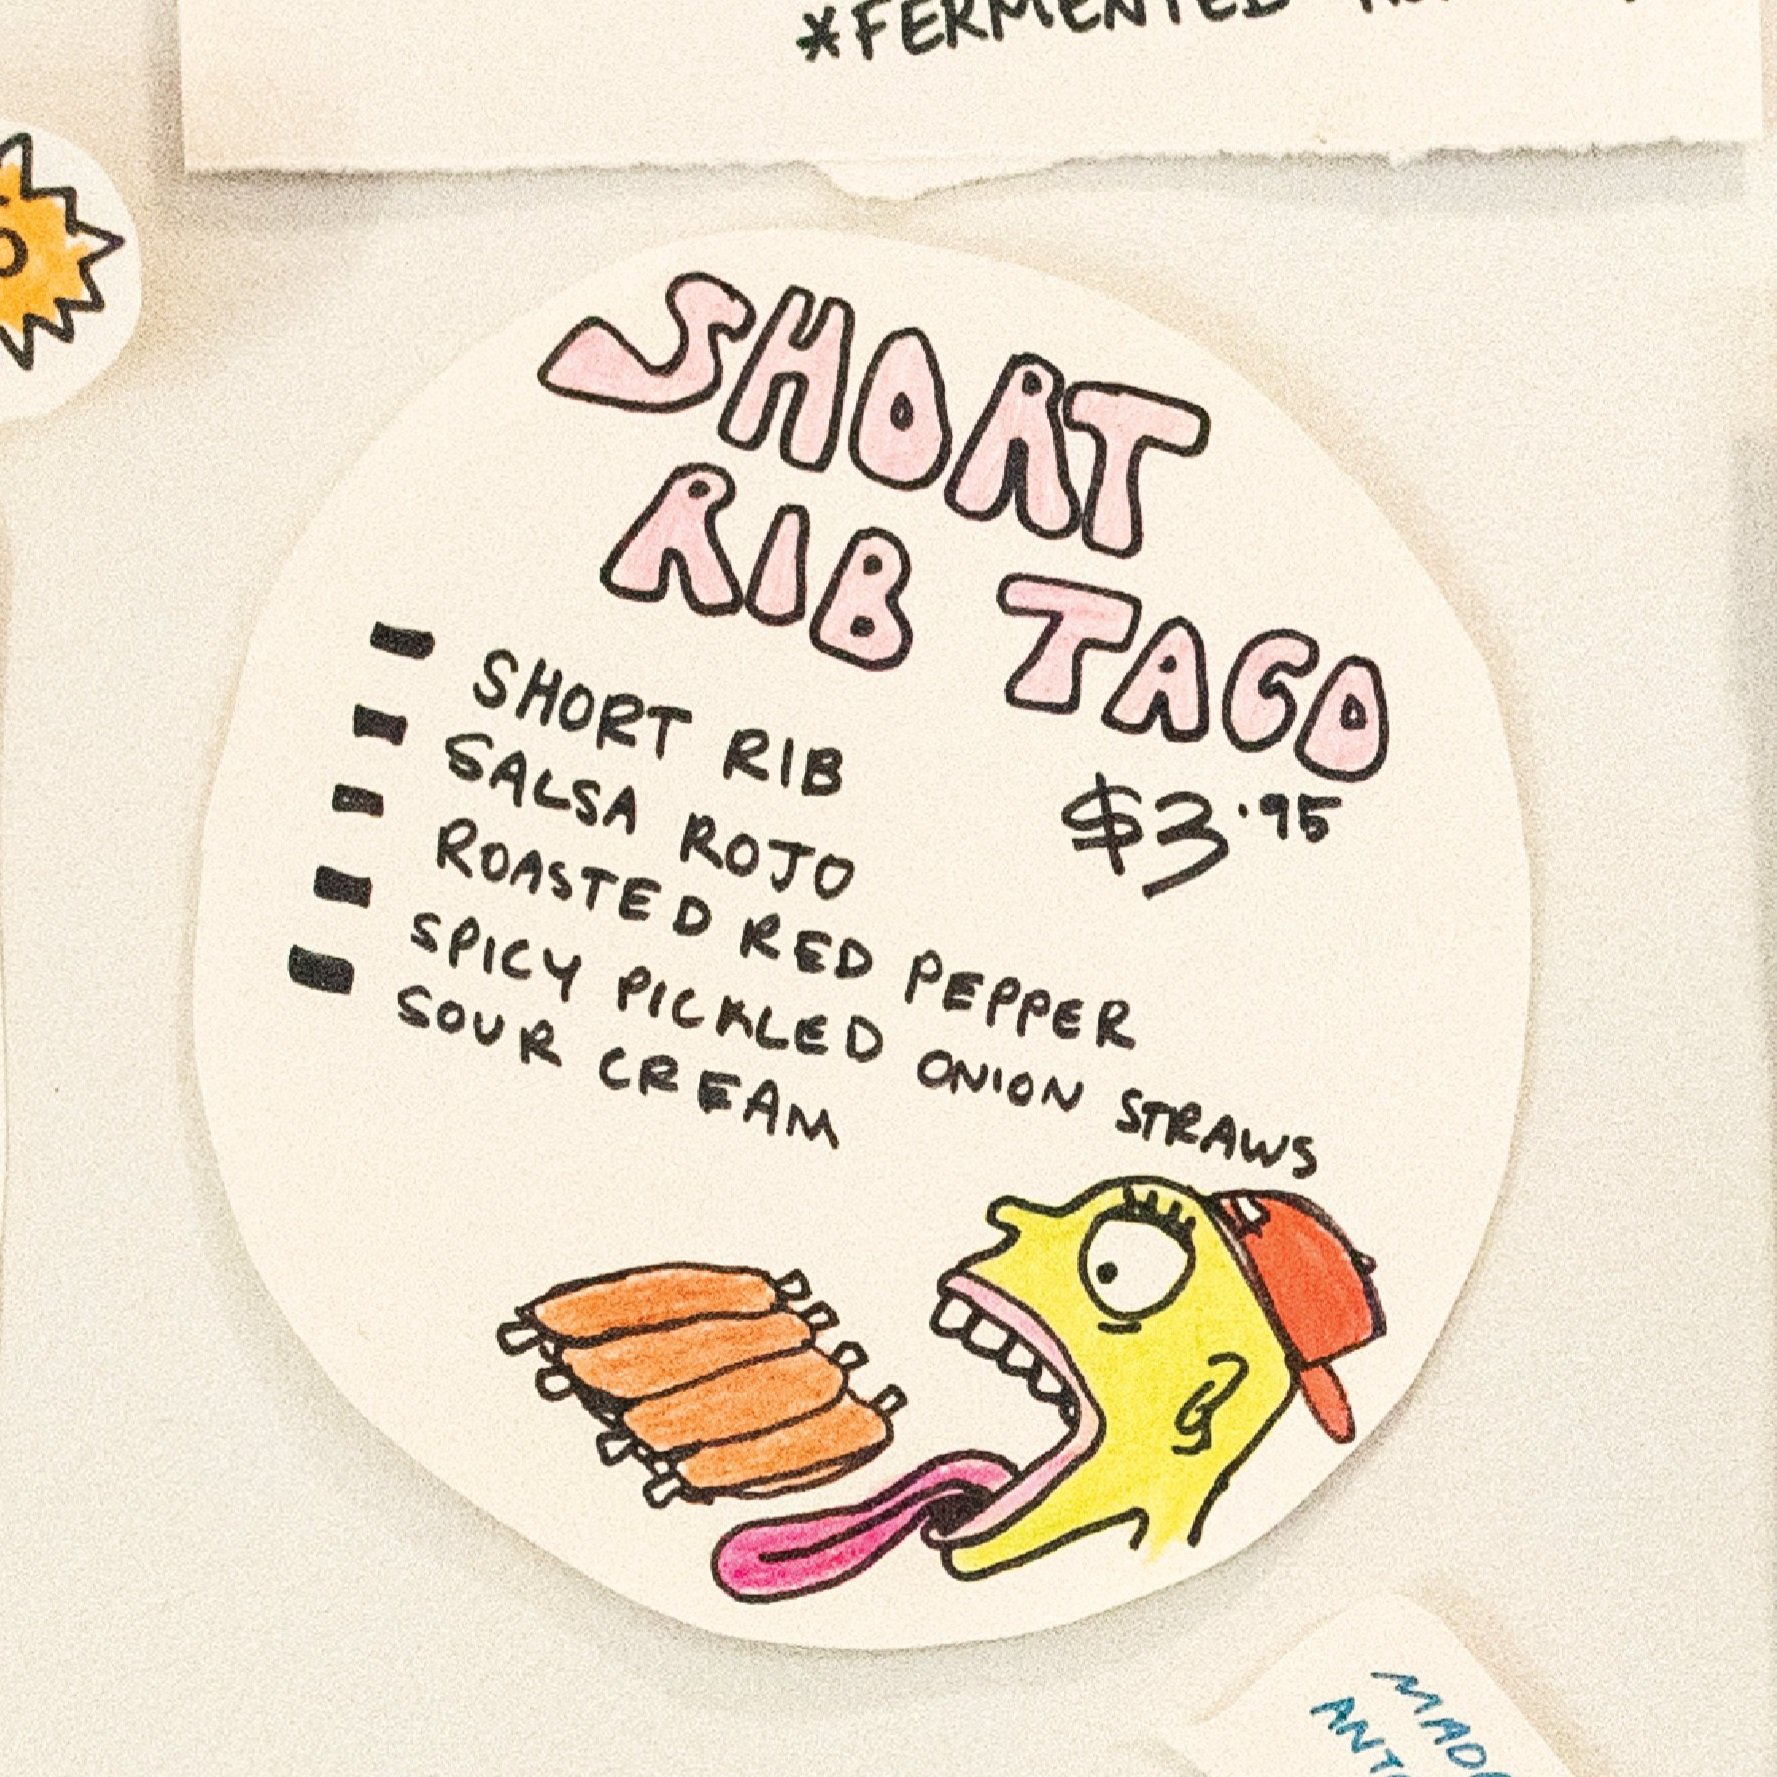 *FERMENTED
SHORT
RIB TACO
$3.95
SHORT RIB
SALSA ROJO
ROASTED RED PEPPER
SPICY PICKLED ONION STRAWS
SOUR CREAM